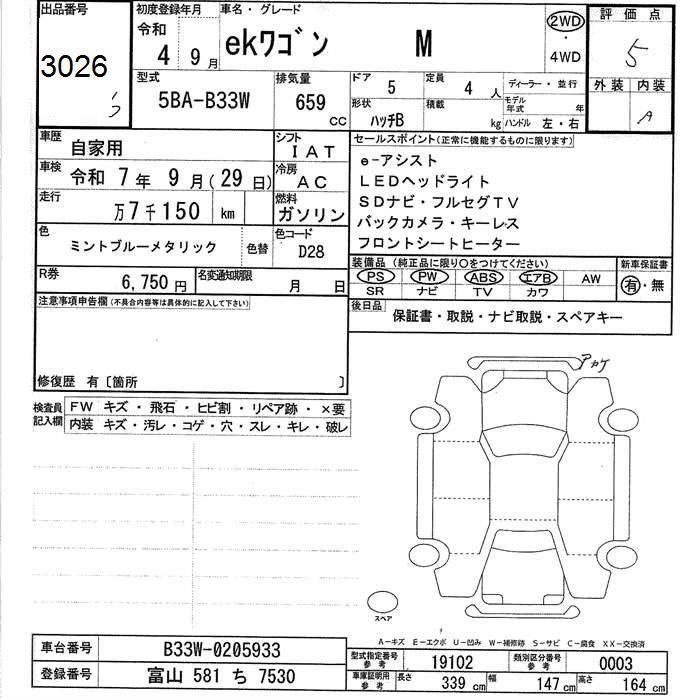 出品番号
3026
初度登録年月
令和
4 9月
車名・グレード
ekワゴン M
2WD
・
4WD
評価点
5
型式
5BA-B33W
排気量
659 cc
ドア
5
定員
4 人
ディーラー・並行
形状
ハッチB
積載
kg
モデル年式 年
ハンドル 左・右
外装 内装
A
車歴
自家用
シフト
IAT
車検
令和 7年 9月(29日)
冷房
AC
走行
万7千150 km
燃料
ガソリン
色
ミントブルーメタリック
色替
色コード
D28
R券
6,750円
名変通知期限
月 日
セールスポイント(正常に機能するものに限ります)
e-アシスト
LEDヘッドライト
SDナビ・フルセグTV
バックカメラ・キーレス
フロントシートヒーター
装備品 (純正品に限り〇をつけてください)
PS PW ABS エアB AW
SR ナビ TV カワ
新車保証書
有・無
後日品
保証書・取説・ナビ取説・スペアキー
注意事項申告欄(不具合内容等は具体的に記入して下さい)
修復歴 有〔箇所 〕
検査員記入欄
FW キズ・飛石・ヒビ割・リペア跡・×要
内装 キズ・汚レ・コゲ・穴・スレ・キレ・破レ
アカケ
スペア
A-キズ E-エクボ U-凹み W-補修跡 S-サビ C-腐食 XX-交換済
車台番号
B33W-0205933
登録番号
富山 581 ち 7530
型式指定番号
参考
19102
類別区分番号
参考
0003
車庫証明用
参考
長さ
339 cm
幅
147 cm
高さ
164 cm